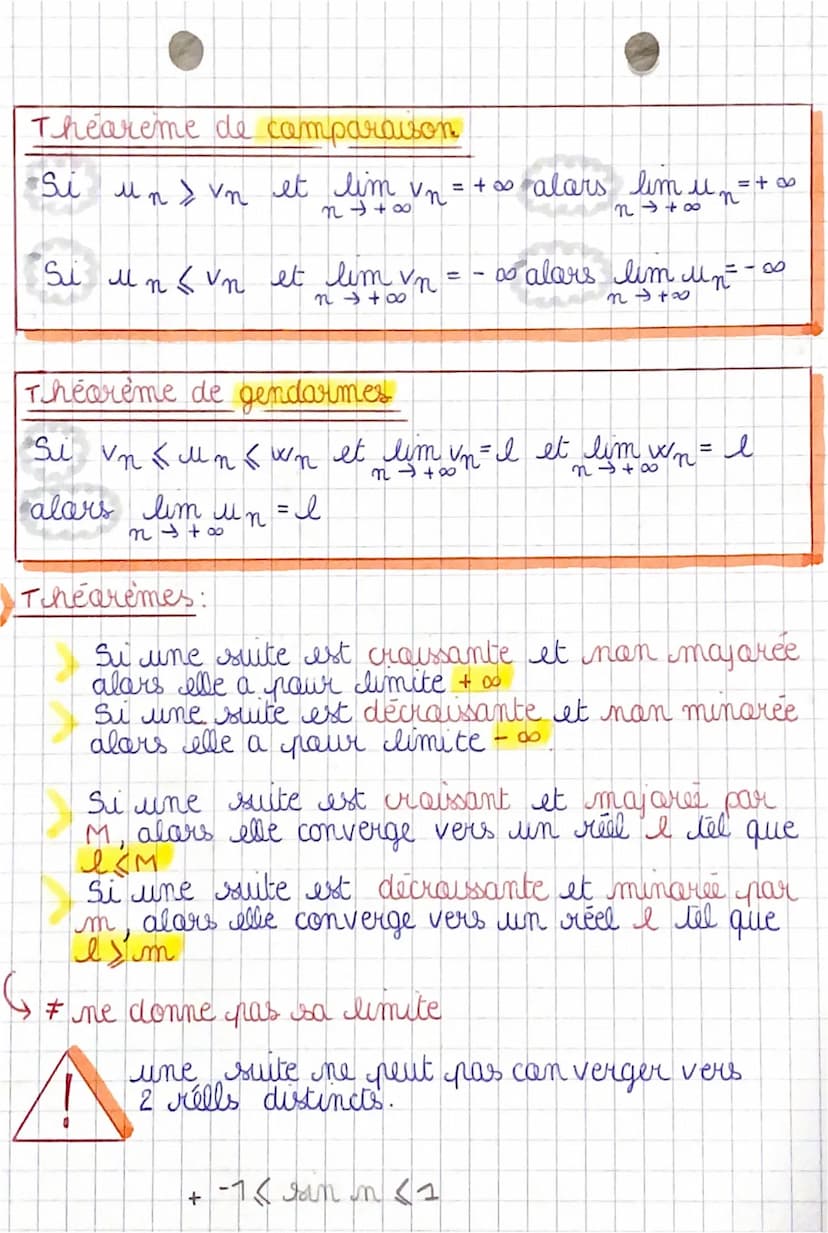 Théorème de comparaison
Si un ⩾ vn et lim vn = +∞ alors lim un = +∞
n → +∞ n → +∞
Si un ⩽ vn et lim vn = -∞ alors lim un = -∞
n → +∞ n → +∞
Théorème de gendarmes
Si vn ⩽ un ⩽ wn et lim vn = l et lim wn = l
n → +∞ n → +∞
alors lim un = l
n → +∞
Théorèmes :
Si une suite est croissante et non majorée
alors elle a pour limite +∞
Si une suite est décroissante et non minorée
alors elle a pour limite -∞.
Si une suite est croissant et majorée par
M, alors elle converge vers un réel l tel que
l ⩽ M
Si une suite est décroissante et minorée par
m, alors elle converge vers un réel l tel que
l ⩾ m
≠ ne donne pas sa limite
! une suite ne peut pas converger vers
2 réells distincts.
+ -1 ⩽ sin n ⩽ 1